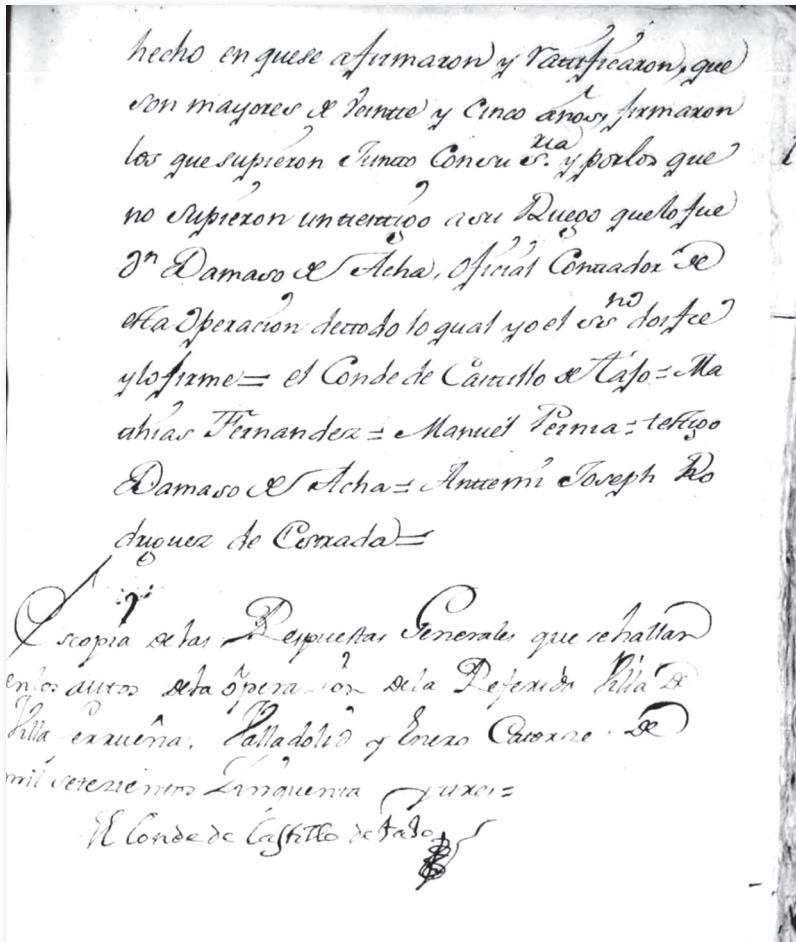 hecho en quese afirmaron y Ratificaron, que
son mayores de Veintte y Cinco años, firmaron
los que supieron Juntto Consu S.ria y porlos que
no supieron untesttigo a su Ruego quelo fue
Dn Damaso de Acha, Oficial Conttador de
estta Operacion dettodo lo qual yo el ssno doi fee
ylo firme = el Conde de Casttillo de Tajo = Ma
thias Fernandez = Manuel Pernia = testtigo
Damaso de Acha = Anttemi Joseph Ro
driguez de Cossada =
Es copia delas Respuesttas Generales que sehallan
enlos auttos dela Operacion dela Referida Villa de
Villa errueña. Valladolid y Enero Cattorze de
mil settezienttos Zinquenta y tres =
El Conde de Castillo de Tajo